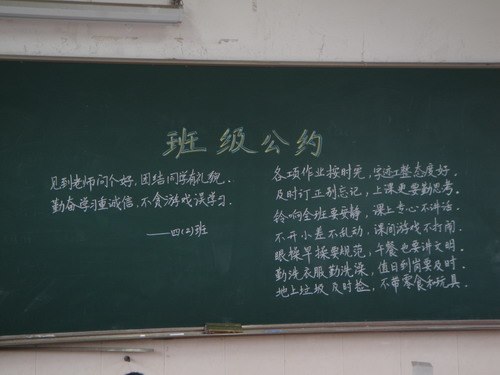 班级公约
见到老师问个好,团结同学有礼貌.
勤奋学习重诚信,不贪游戏误学习.
——四(2)班
各项作业按时完,字迹工整态度好.
及时订正别忘记,上课更要勤思考.
铃响全班要安静,课上专心不讲话.
不开小差不乱动,课间游戏不打闹.
眼操早操要规范,午餐也要讲文明.
勤洗衣服勤洗澡,值日到岗要及时.
地上垃圾及时捡,不带零食和玩具.